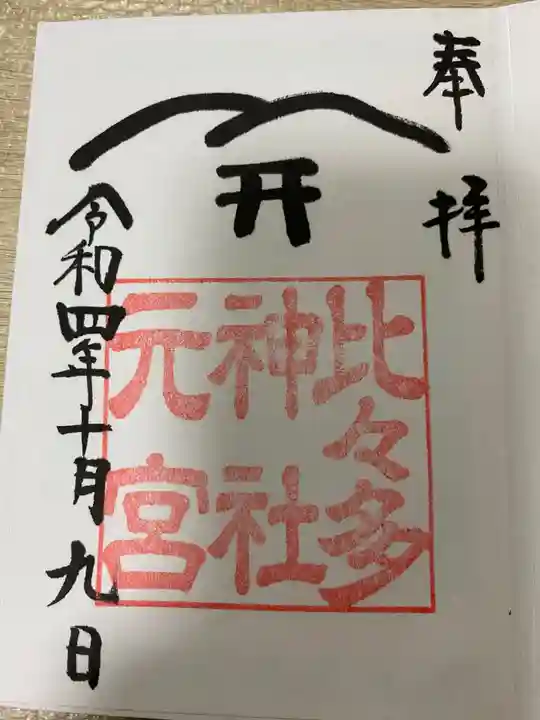 奉拝
比々多
神社
元宮
令和四年十月九日